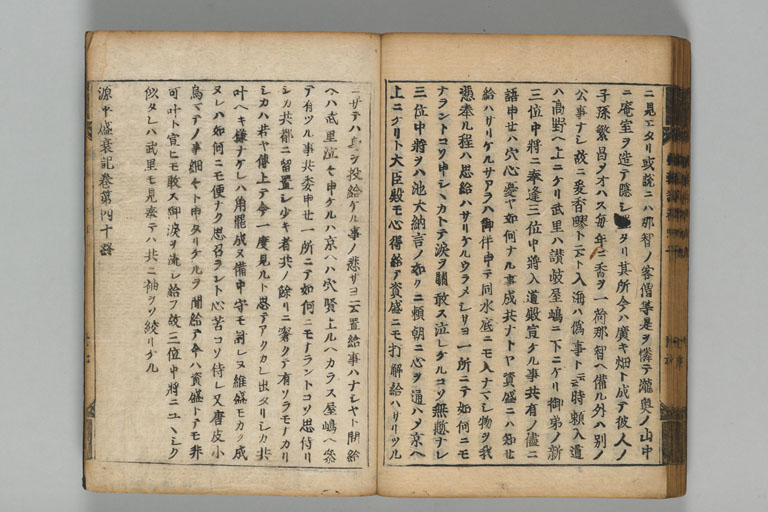 ニ見エタリ或説ニハ那智ノ客僧等是ヲ憐テ瀧奥ノ山中
ニ庵室ヲ造テ隠シ タリ其所今ハ廣キ畑ト成テ彼人ノ
子孫繁昌シテオハス毎年ニ香ヲ一荷那智ヘ備ル外ハ別ノ
公事ナシ故ニ爰香
ト云ト入海ハ偽事ト云云時頼入道
ハ高野ヘ上ニケリ武里ハ讃岐屋嶋ニ下ニケリ御弟ノ新
三位中將ニ奉逢三位中將入道殿宣ケル事共有ノ儘ニ
語申セハ穴心憂ヤ如何ナル事成共ナトヤ資盛ニハ知セ
給ハサリケルサアラハ御伴申テ同水底ニモ入ナマシ物ヲ我
憑奉ル程ハ思給ハサリケルウラメシサヨ一所ニテ如何ニモ
ナラントコソ申シヽカトテ涙ヲ
敢ス泣レケルコソ無慙ナレ
三位中將ヲハ池大納言ノ如クニ頼朝ニ心ヲ通ハメ京ヘ
上ニケリト大臣殿モ心得給テ資盛ニモ打解給ハサリツル
ニサテハ身ヲ投給ケル事ノ悲サヨ云置給事ハナシヤト問給
ヘハ武里泣々申ケルハ京ヘハ穴賢上ルヘカラス屋嶋ヘ参
テ有ツル事共委申セ一所ニテ如何ニモナラントコソ思侍リ
シカ共都ニ留置シ少キ者共ノ餘リニ
クテ有ソラモナカリ
シカハ若ヤ傳上テ今一度見ルト思テアクカレ出タリシカ共
叶ヘキ様ナケレハ角罷成ヌ備中守モ討レヌ維盛モカク成
ヌレハ如何ニモ便ナク思召ラント心苦コソ侍レ又唐皮小
烏マテノ事細々ト申タリケルヲ聞給テ今ハ資盛トテモ非
可叶ト宣ヒモ敢ス御涙ヲ流シ給フ故三位中將ニユヽシク
似タレハ武里モ見奏テハ共ニ袖ヲソ絞リケル
源平盛衰記巻第四十終